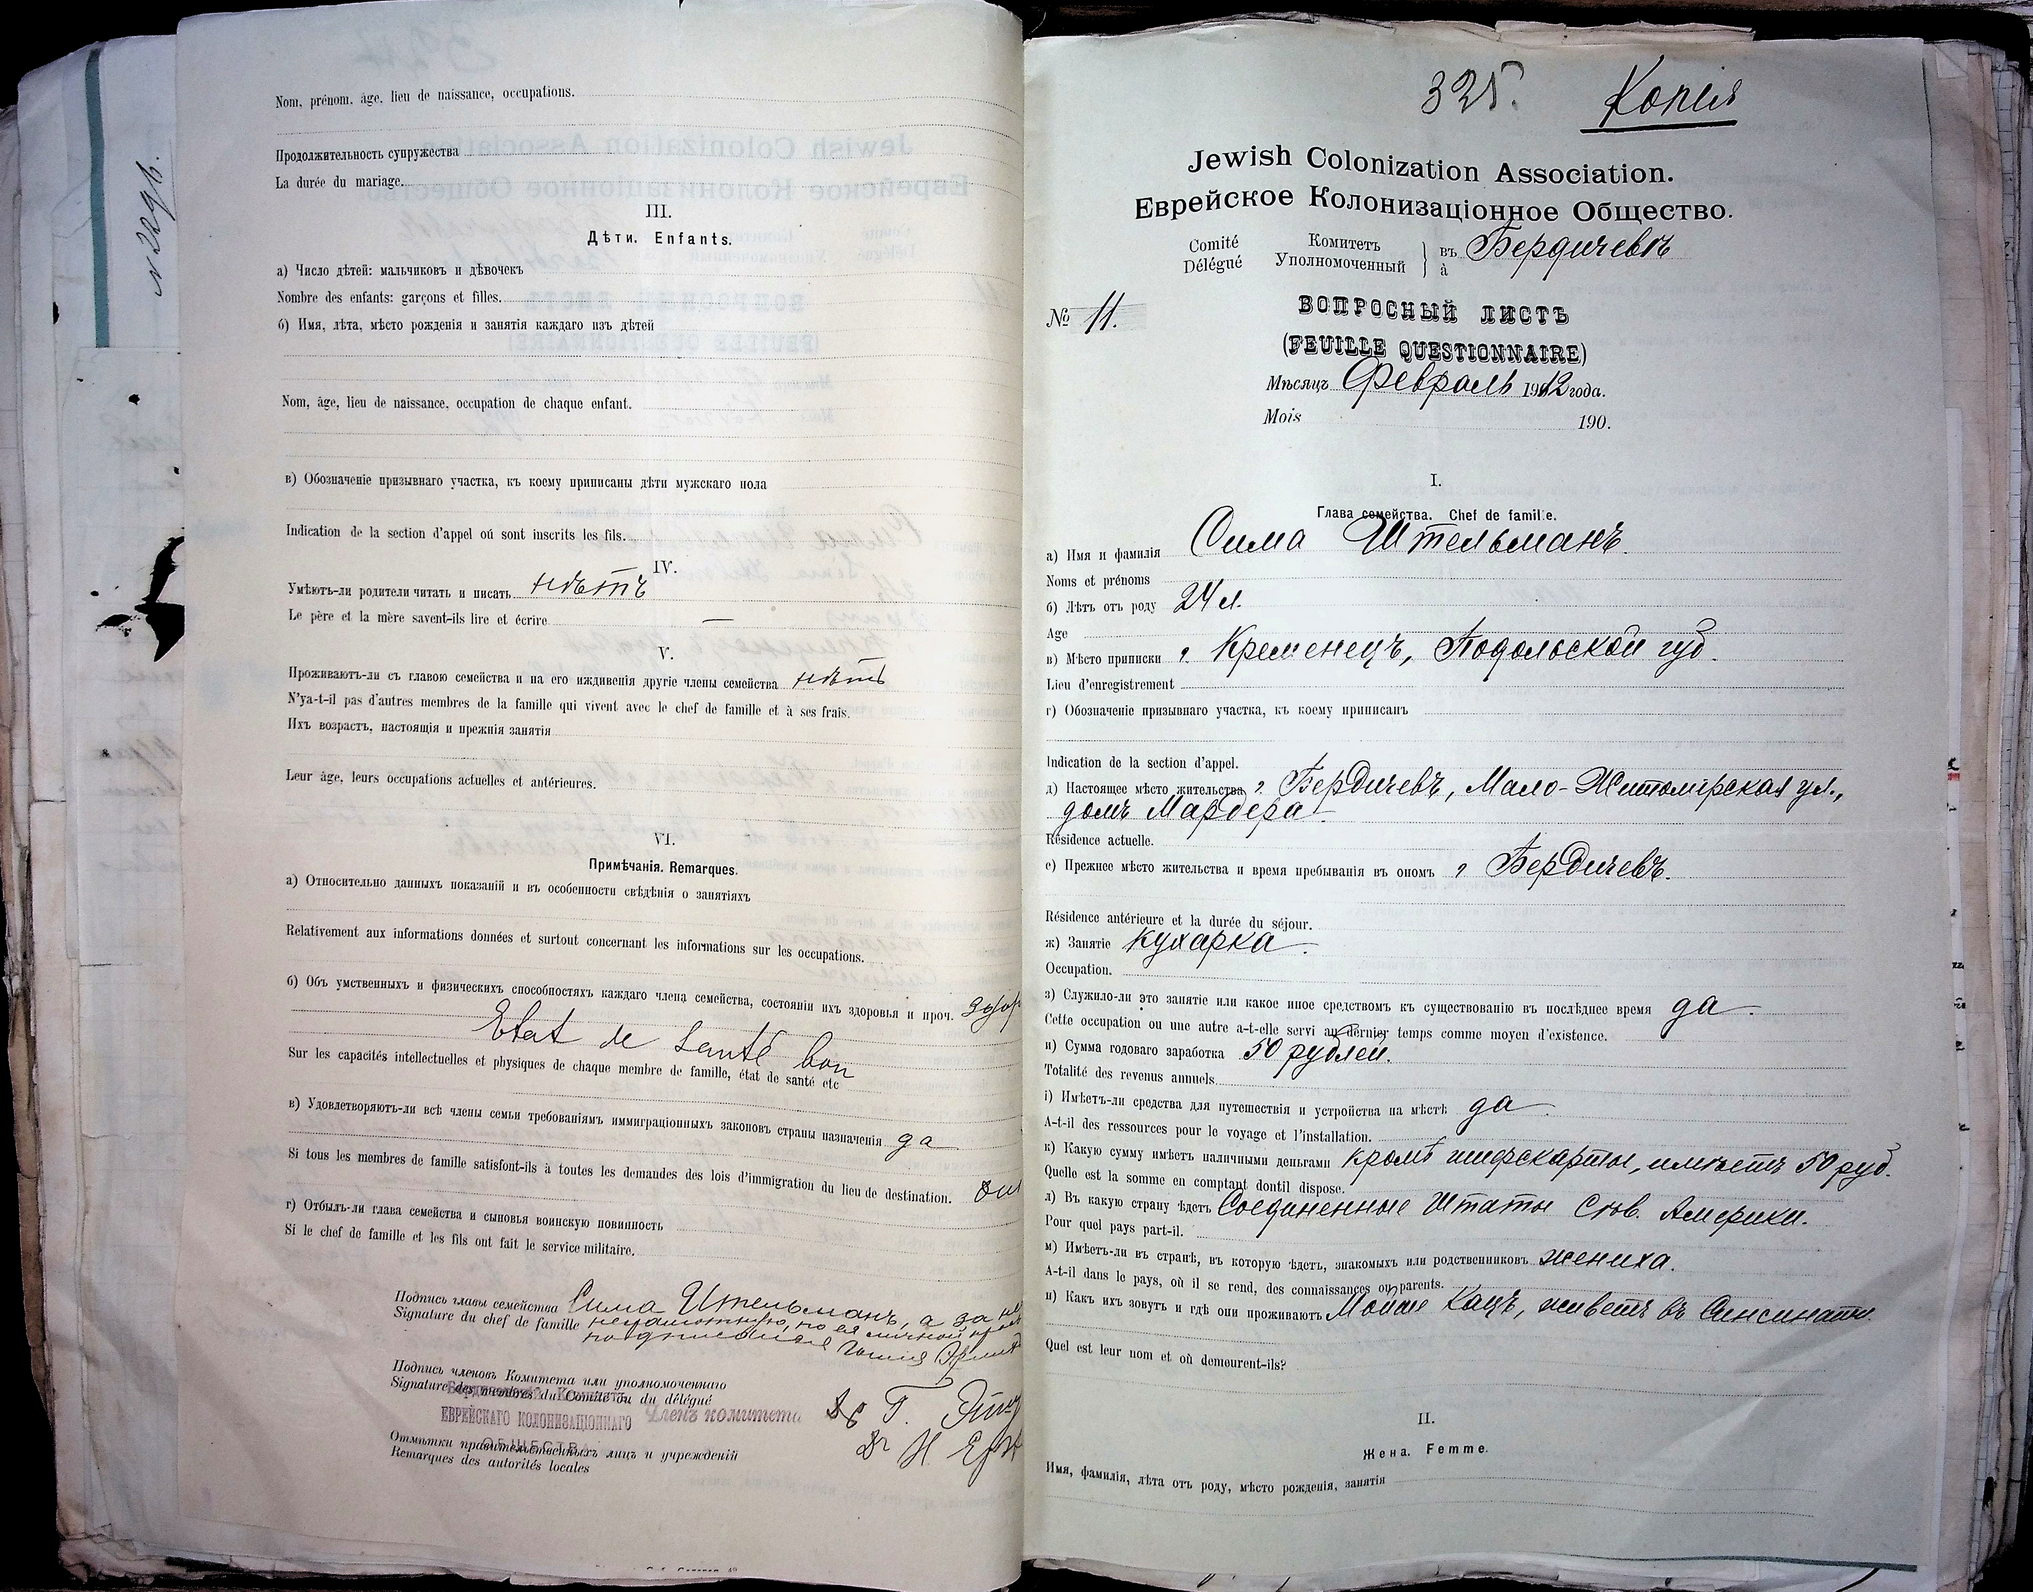 № 2296.
Nom, prénom, âge, lieu de naissance, occupations.
Продолжительность супружества
La durée du mariage.
III.
Дѣти. Enfants.
а) Число дѣтей: мальчиковъ и дѣвочекъ
Nombre des enfants: garçons et filles.
б) Имя, лѣта, мѣсто рожденія и занятія каждаго изъ дѣтей
Nom, âge, lieu de naissance, occupation de chaque enfant.
в) Обозначеніе призывнаго участка, къ коему приписаны дѣти мужскаго пола
Indication de la section d'appel oú sont inscrits les fils.
IV.
Умѣютъ-ли родители читать и писать нѣтъ
Le père et la mère savent-ils lire et écrire —
V.
Проживаютъ-ли съ главою семейства и на его иждивенія другіе члены семейства нѣтъ
N'ya-t-il pas d'autres membres de la famille qui vivent avec le chef de famille et à ses frais.
Ихъ возрастъ, настоящія и прежнія занятія
Leur âge, leurs occupations actuelles et antérieures.
VI.
Примѣчанія. Remarques.
а) Относительно данныхъ показаній и въ особенности свѣдѣнія о занятіяхъ
Relativement aux informations données et surtout concernant les informations sur les occupations.
б) Объ умственныхъ и физическихъ способностяхъ каждаго члена семейства, состояніи ихъ здоровья и проч.
Etat de santé bon
Sur les capacités intellectuelles et physiques de chaque membre de famille, état de santé etc
в) Удовлетворяютъ-ли всѣ члены семьи требованіямъ иммиграціонныхъ законовъ страны назначенія да
Si tous les membres de famille satisfont-ils à toutes les demandes des lois d'immigration du lieu de destination.
г) Отбылъ-ли глава семейства и сыновья воинскую повинность
Si le chef de famille et les fils ont fait le service militaire.
Подпись главы семейства Сима Штельманъ, а за
Signature du chef de famille неграмотную, по ея личной
Подпись членовъ Комитета или уполномоченнаго
Signature des membres du Comité ou du délégué
ЕВРЕЙСКАГО КОЛОНИЗАЦІОННАГО Членъ комитета
ОБЩЕСТВА
Отмѣтки правительственныхъ лицъ и учрежденій
Remarques des autorités locales
325. Копія
Jewish Colonization Association.
Еврейское Колонизаціонное Общество.
Comité Комитетъ въ Бердичевѣ
Délégué Уполномоченный à
№ 11.
ВОПРОСНЫЙ ЛИСТЪ
(FEUILLE QUESTIONNAIRE)
Мѣсяцъ Февраль 1912 года.
Mois 190.
I.
Глава семейства. Chef de famille.
а) Имя и фамилія Сима Штельманъ.
Noms et prénoms
б) Лѣтъ отъ роду 24 л.
Age
в) Мѣсто приписки г. Кременецъ, Подольской губ.
Lieu d'enregistrement
г) Обозначеніе призывнаго участка, къ коему приписанъ
Indication de la section d'appel.
д) Настоящее мѣсто жительства г. Бердичевъ, Мало-Житомірская ул.,
домъ Мардера.
Résidence actuelle.
е) Прежнее мѣсто жительства и время пребыванія въ ономъ г. Бердичевъ.
Résidence antérieure et la durée du séjour.
ж) Занятіе кухарка.
Occupation.
з) Служило-ли это занятіе или какое иное средствомъ къ существованію въ послѣднее время да.
Cette occupation ou une autre a-t-elle servi au dernier temps comme moyen d'existence.
и) Сумма годоваго заработка 50 рублей.
Totalité des revenus annuels
і) Имѣетъ-ли средства для путешествія и устройства на мѣстѣ да.
A-t-il des ressources pour le voyage et l'installation.
к) Какую сумму имѣетъ наличными деньгами кромѣ шифскарты, имѣетъ 50 руб.
Quelle est la somme en comptant dontil dispose.
л) Въ какую страну ѣдетъ Соединенные Штаты Сѣв. Америки.
Pour quel pays part-il.
м) Имѣетъ-ли въ странѣ, въ которую ѣдетъ, знакомыхъ или родственниковъ жениха.
A-t-il dans le pays, où il se rend, des connaissances ou parents.
н) Какъ ихъ зовутъ и гдѣ они проживаютъ Мойше Кацъ, живетъ въ Синсинати.
Quel est leur nom et où demeurent-ils?
II.
Жена. Femme.
Имя, фамилія, лѣта отъ роду, мѣсто рожденія, занятія